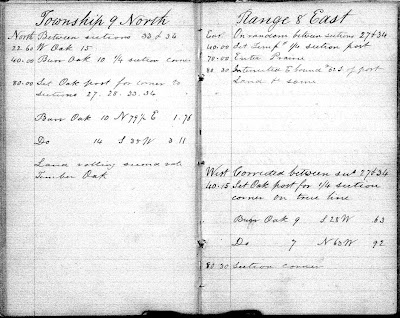 Township 9 North
North Between sections 33 & 34
22.60 W Oak 15
40.00 Burr Oak 10 1/4 section corner
80.00 Set Oak post for corner to
sections 27. 28. 33. 34
Burr Oak 10 N 79½ E 1.76
Do 14 S 38 W 3 11
Land rolling second rate
Timber Oak
Range 8 East
East On random between sections 27 & 34
40.00 Set Temp 1/4 section post
70.00 Enter Prairie
80.30 Intersected E bound of post
Land & same
West Corrected between sec 27 & 34
40.15 Set Oak post for 1/4 section
corner on true line
Burr Oak 9 S 28 W 63
Do 7 N 60 W 92
80.30 section corner